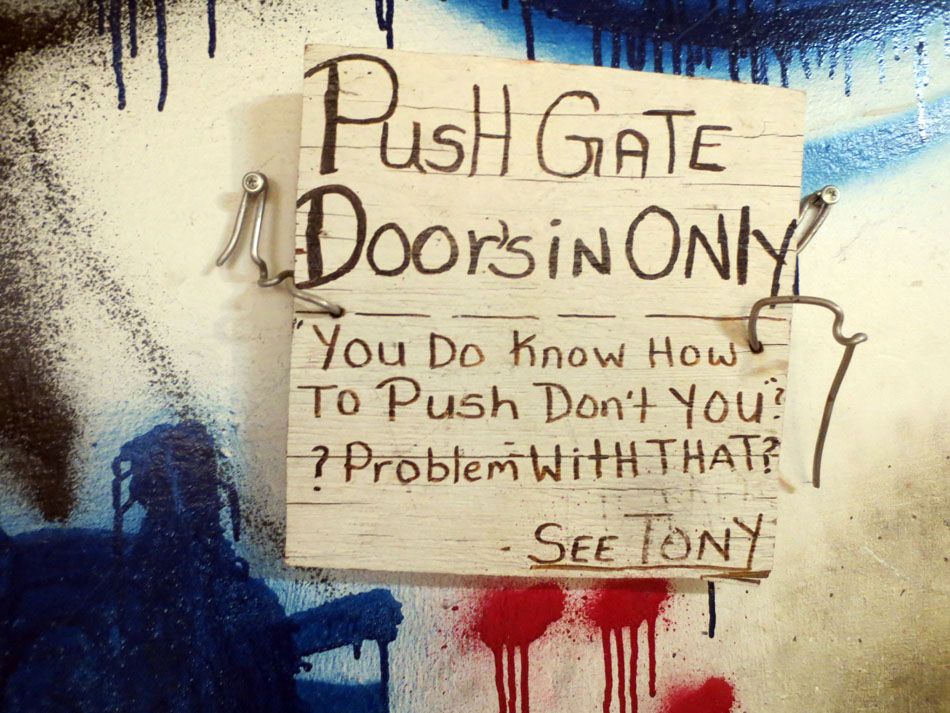 PusH GATE
Door'sin ONly
"You Do Know How
To Push Don't You"?
? Problem WitH THAT?
- SEE TONY